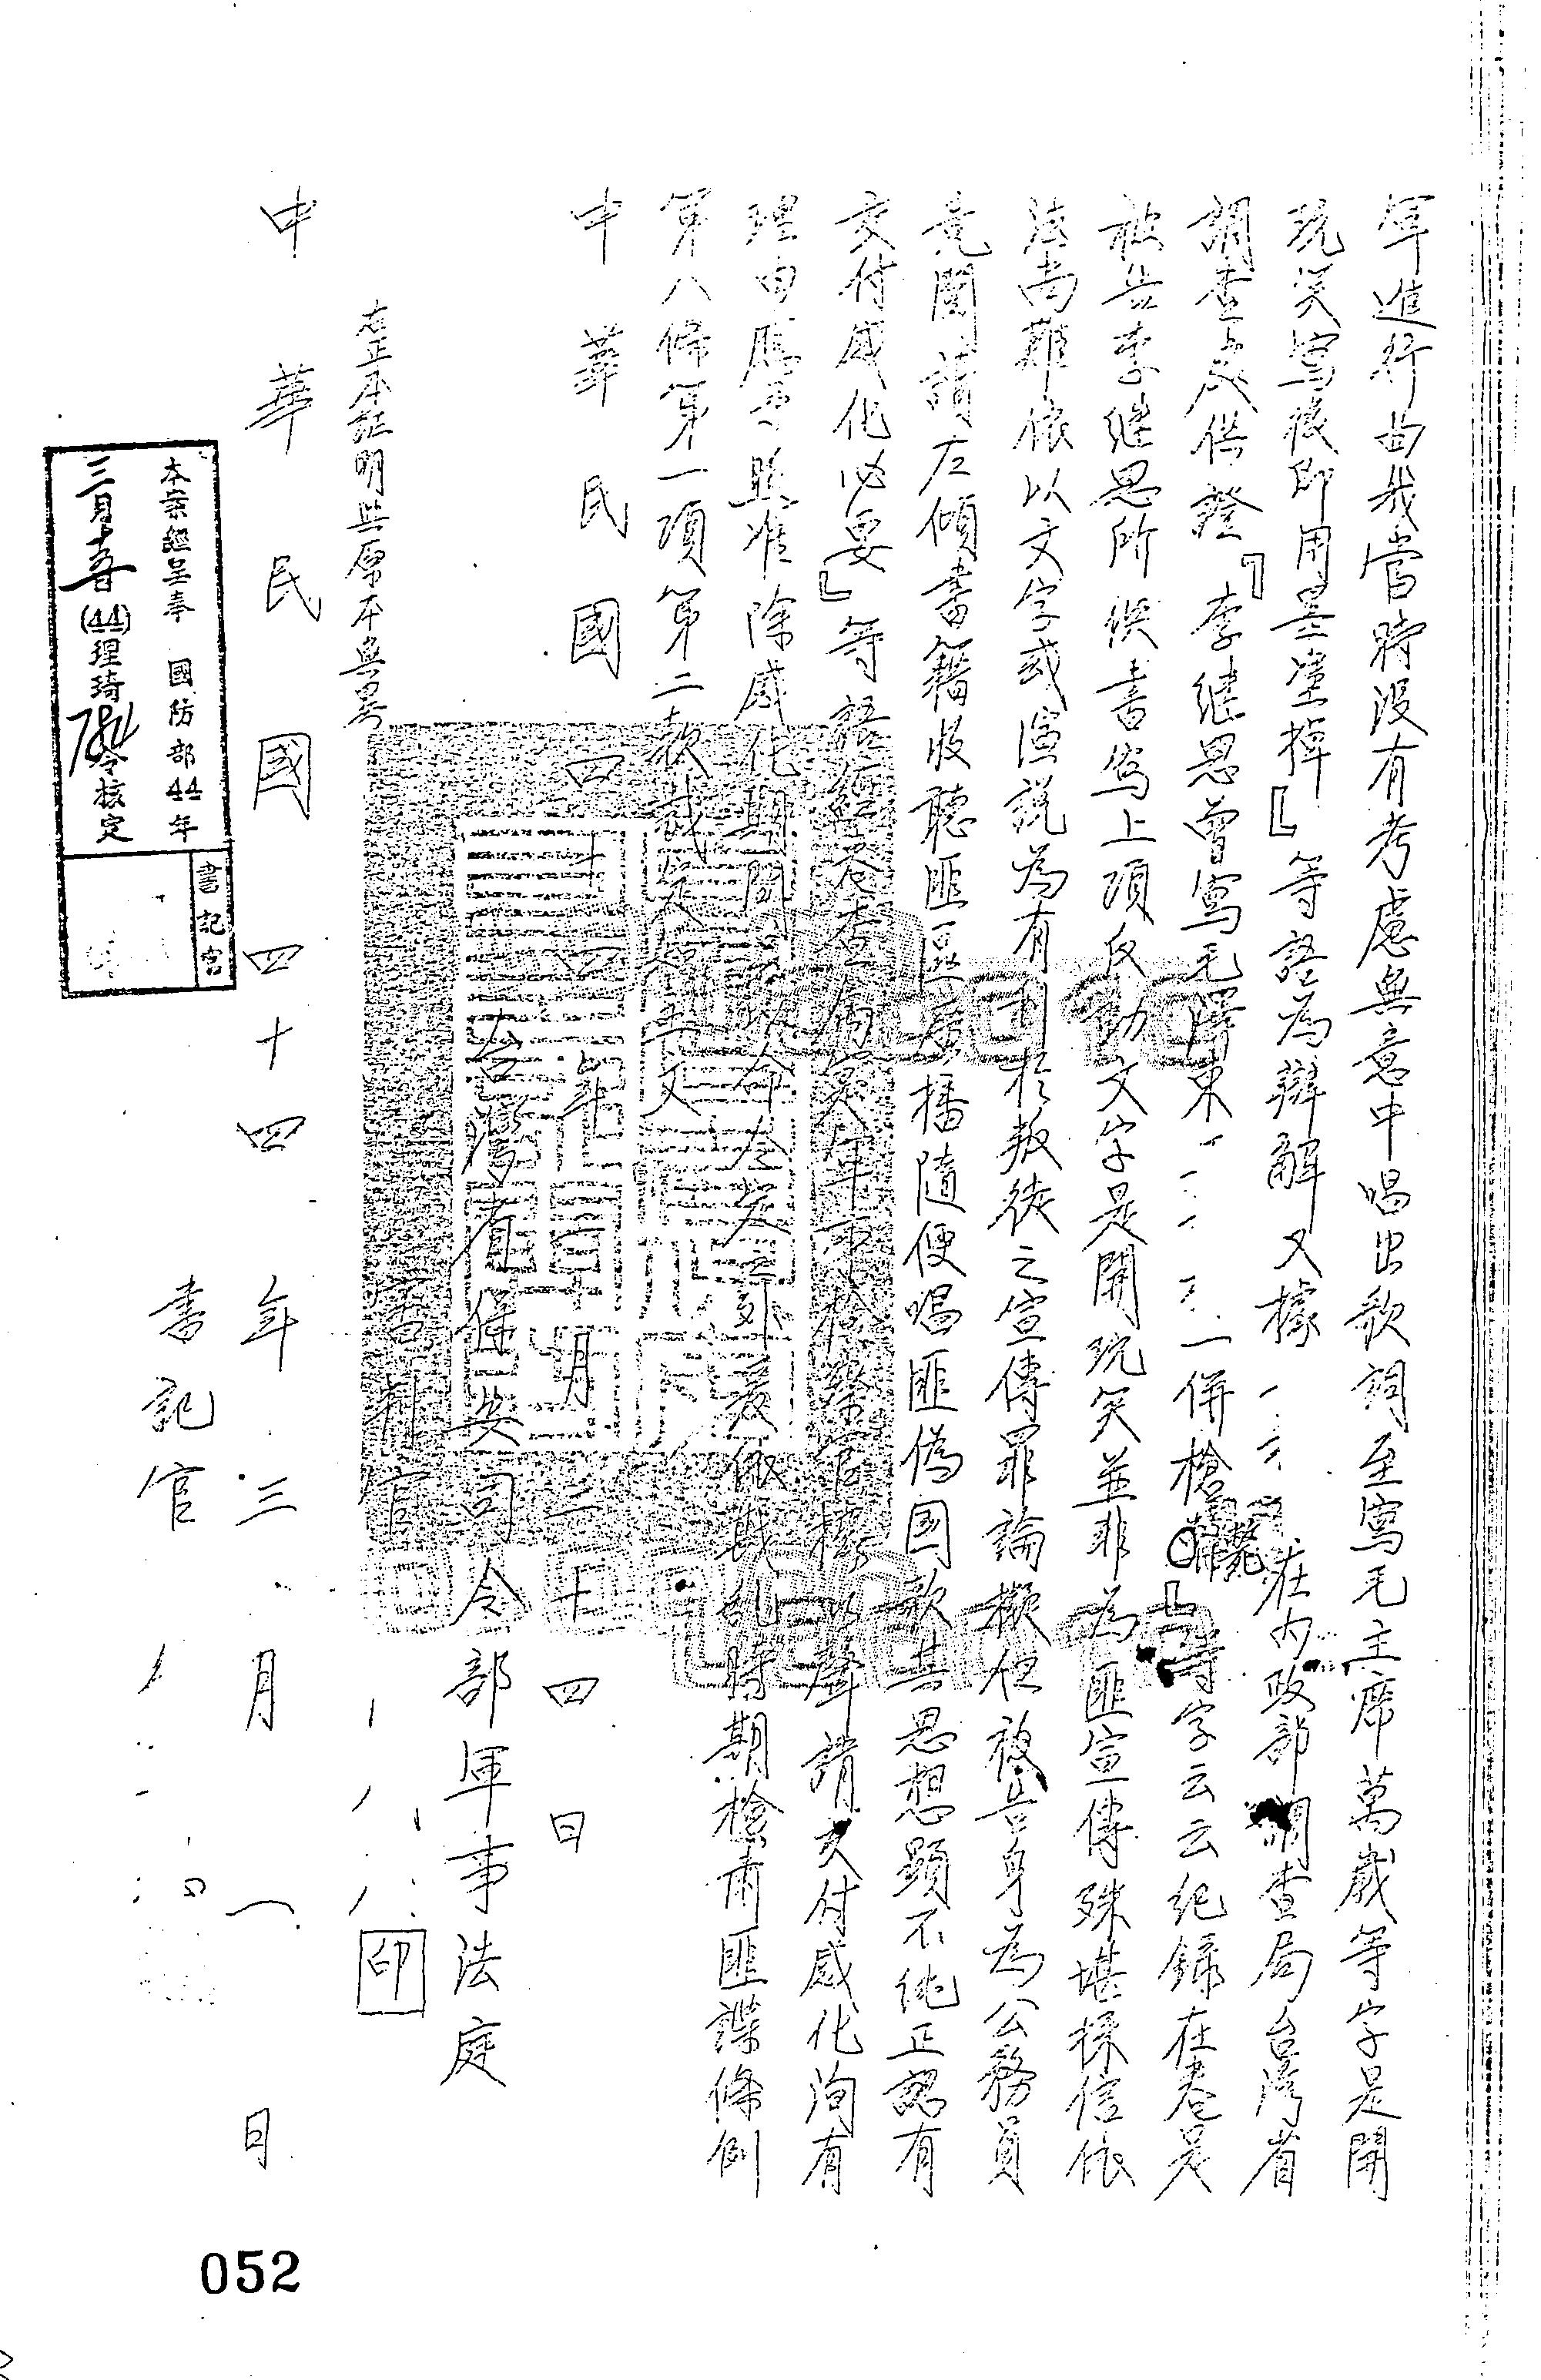 軍進行曲我當時沒有考慮無意中唱出歌詞至寫毛主席萬歲等字是開
玩笑寫後即用墨塗掉』等語為辯解又據 在內政部調查局台灣省
調查處供證『李继思曾寫毛澤東 一併槍斃』等字云云纪錄在卷是
被告李继思所供書寫上項反動文字是開玩笑並非為匪宣傳殊堪採信依
法尚難依以文字或演説為有利於叛徒之宣傳罪論擬但被告身為公務員
竟閱讀左傾書籍收聽匪區廣播隨便唱匪偽国歌其思想顕不純正認有
交付感化必要』等語經本庭查屬實軍事檢察官據以聲請交付感化洵有
理由應予照准除感化期間 命令定之外爰依戡亂時期檢肅匪諜條例
第八條第一項第二款裁定如主文
中華民國四十四年二月二十四日
台灣省保安司令部軍事法庭
審判官 印
右正本証明與原本無異
中華民國四十四年三月一日
書記官
本案經呈奉 國防部44年
三月十五日(44)理琦 令核定
書記官
052